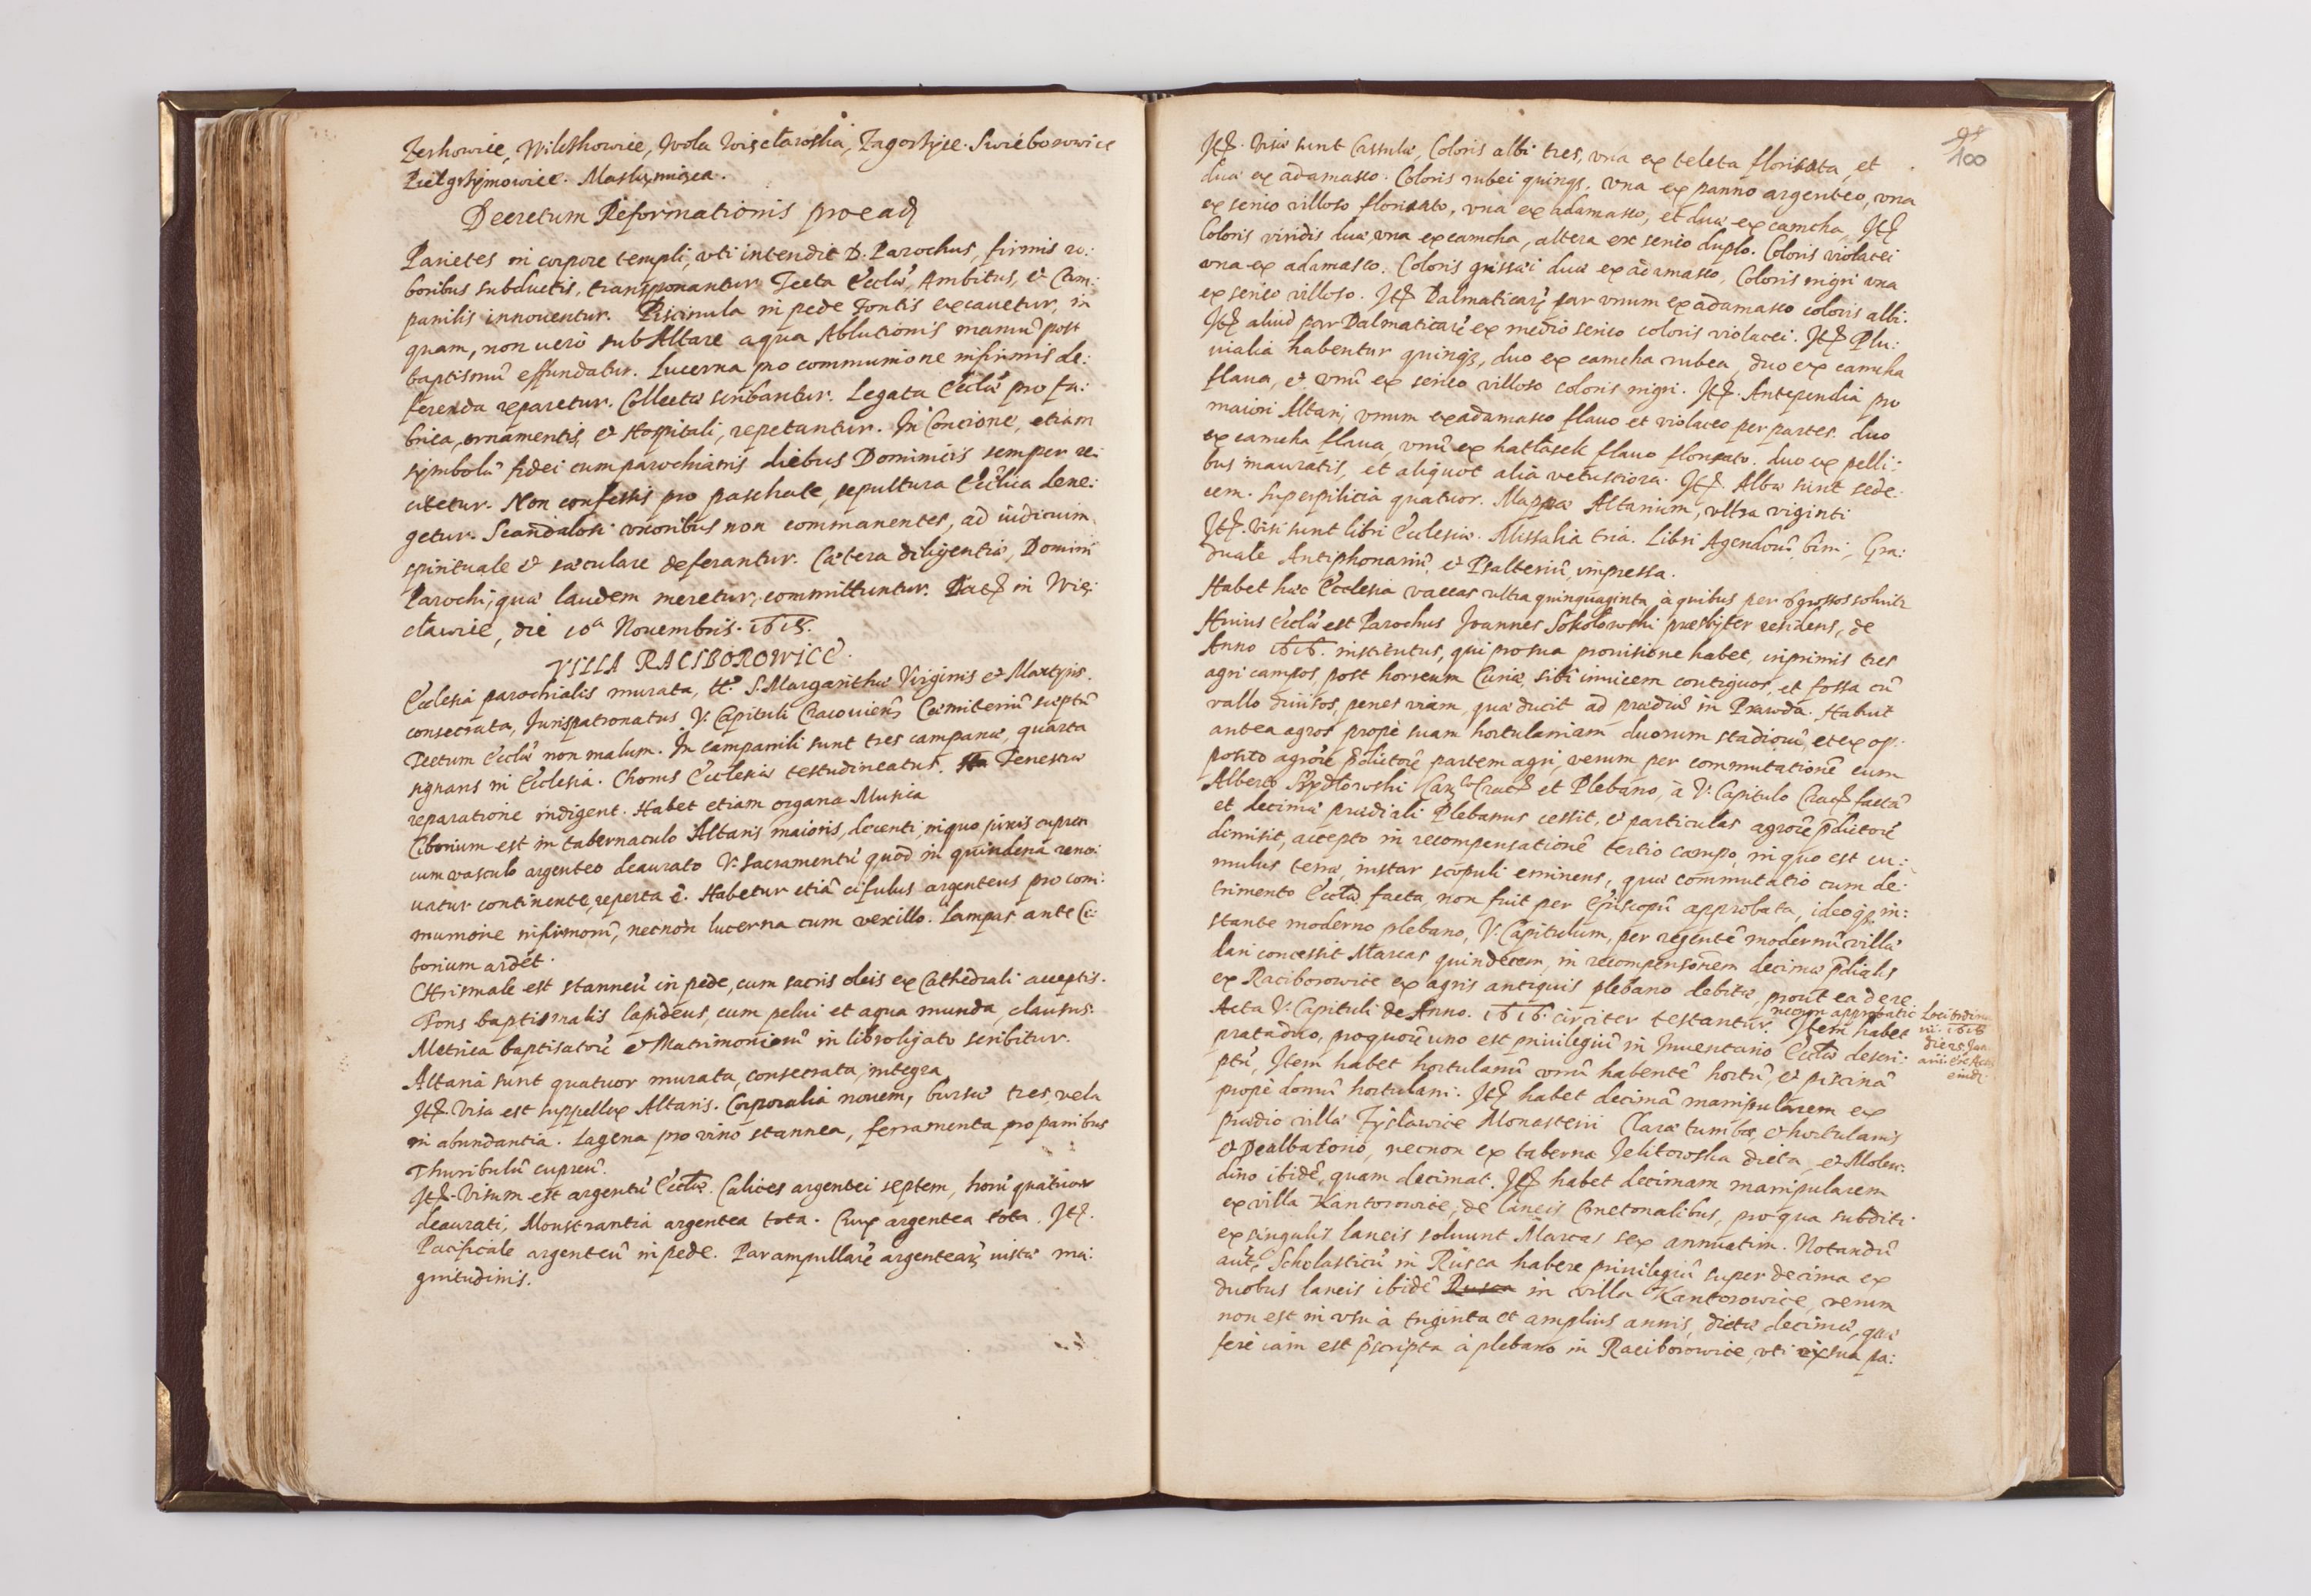 Zerkowice, Wilczkowice, Wola Więcławska, Zagorzyce. Swiéborowice
Pielgrzymowice. Masłomiąca.
Decretum Reformationis pro ead
Parietes in corpore templi, vti intendit D. Parochus, firmis ro:
boribus subductis, transponantur. Tecta Eccłæ, Ambitus, et Cam:
panilis innouentur. Piscinula in pede Fontis excauetur, in
quam, non uero sub Altare aqua Ablutionis manuũ post
baptismũ effundatur. Lucerna pro communione infirmis de:
ferenda reparetur. Collecta scribantur. Legata Eccłæ pro fa:
brica, ornamentis, et Hospitali, repetantur. In Concione, etiam
symbolũ fidei cum parochianis diebus Dominicis semper re:
citetur. Non confessis pro paschate, sepultura Ecclica dene:
getur. Scandalosi vxoribus non commanentes, ad iudicium
spirituale et sæculare deferantur. Cætera diligentiæ, Domini
Parochi, qua laudem meretur, committuntur. Dat in Wię:
cławice, die 10a Nouembris. 1618.
VILLA RACIBOROWICE.
Ecclesia parochialis murata, tt. S. Margarithæ Virginis et Martyris.
consecrata, Jurispatronatus V. Capituli Cracouień, Cæmiteriũ septũ
Tectum Eccłæ non malum. In campanili sunt tres campanæ, quarta
signans in Ecclesia. Chorus Ecclesiæ testudineatus. Fenestræ
reparatione indigent. Habet etiam organa Musica
Ciborium est in tabernaculo Altaris maioris, decenti, in quo pixis cuprea
cum vasculo argenteo deaurato V. Sacramentũ quod in quindena reno:
uatur continente, reperta ẽ. Habetur etiã cifulus argenteus pro com:
munione infirmorũ, necnon lucerna cum vexillo. Lampas ante Ci:
borium ardet.
Chrismale est stanneũ in pede, cum sacris oleis ex Cathedrali acceptis.
Fons baptismalis lapideus, cum pelui et aqua munda, clausus.
Metrica baptisatorũ et Matrimoniorũ in libro ligato scribitur.
Altaria sunt quatuor murata, consecrata, integra
It. Visa est suppellex Altaris. Corporalia nouem, bursæ tres, vela
in abundantia. Lagena pro vino stannea, ferramenta pro panibus
Thuribulũ cupreũ.
It. Visum est argentũ Eccłæ. Calices argentei septem, horũ quatuor
deaurati, Monstrantia argentea tota. Crux argentea tota. It.
Pacificale argenteũ in pede. Par ampullarũ argentearũ iustæ ma:
gnitudinis.
98
100
It. Visæ sunt Cassulæ, Coloris albi tres, vna ex teleta florisata, et
duæ ex adamasco. Coloris rubei quinq3, vna ex panno argenteo, vna
ex serico villoso florisato, vna ex adamasco, et duæ ex camcha, It
Coloris viridis duæ, vna ex camcha, altera ex serico duplo. Coloris violacei
vna ex adamasco. Coloris grissei duæ ex adamasco, Coloris nigri vna
ex serico villoso. It Dalmaticarũ par vnum ex adamasco coloris albi.
It. aliud par Dalmaticarũ ex medio serico coloris violacei. It. Plu:
uialia habentur quinq3, duo ex camcha rubea, duo ex camcha
flaua, et vnũ ex serico villoso coloris nigri. It. Antependia pro
maiori Altari, vnum ex adamasco flauo et violaceo per partes. duo
ex camcha flaua, vnũ ex hatłasek flauo florisato. duo ex pelli:
bus inauratis, et aliquot alia vetustiora. It. Albæ sunt sede:
cem. Superpilicia quatuor. Mappæ Altarium, vltra viginti
It. visi sunt libri Ecclesiæ. Missalia tria. Libri Agendorũ bini, Gra:
duale Antiphonariũ, et Psalteriũ, impressa.
Habet hæc Ecclesia vaccas vltra quinquaginta, à quibus per 6 grossos soluitr
Huius Eccłæ est Parochus Joannes Sokołowski præsbyter residens, de
Anno 1616. institutus, qui pro sua prouisione habet, inprimis tres
agri campos, post horreum Curiæ, sibi inuicem contiguos, et fossa cũ
vallo diuisos, penes viam, qua ducit ad prædiũ in Prawda. Habuit
antea agros prope suam hortulaniam duorum stadiorũ, et ex op:
posito agrorũ pdictorũ partem agri, verum per commutationẽ cum
Alberto Szydłowski Can Crac et Plebano, à V. Capitulo Crac factã
et decimæ prædiali Plebanus cessit, et particulas agrorũ pdictorũ
dimisit, accepto in recompensationẽ tertio campo, in quo est cu:
mulus terræ, instar scopuli eminens, quæ commutatio cum de:
trimento Eccłæ facta, non fuit per Episcopũ approbata, ideoq3 in:
stante moderno plebano, V. Capitulum, per regentẽ modernũ villæ
dari concessit Marcas quindecem, in recompensõnem decimæ pdialis
ex Raciborowice ex agris antiquis plebano debitæ, prout ea de re
necnon approbatio Loci ordina
Acta V. Capituli de Anno. 1616. circiter testantur. Item habet
rii. 1618
prata duo, pro quorũ uno est priuilegiũ in Inuentario Eccłæ descri:
die 25 Jan
ptũ, Item habet hortulanũ vnũ habentẽ hortũ, et piscinã
uarii ex Actis
eiusd.
prope domũ hortulani. It habet decimã manipularem ex
prædio villæ Zysławice Monasterii Claræ tumbæ, et hortulanis
et Dealbatorio, necnon ex taberna Jelitowska dicta, et Molen:
dino ibidẽ, quam decimat. It habet decimam manipularem
ex villa Kantorowice, de laneis Cmetonalibus, pro qua subditi
ex singulis laneis soluunt Marcas sex annuatim. Notandũ
autẽ, Scholasticũ in Rusca habere priuilegiũ super decima ex
duobus laneis ibidẽ Rusca in villa Kantorowice, verum
non est in vsu à triginta et amplius annis, dictæ decimæ, quæ
fere iam est pscripta à plebano in Raciborowice, vti ex sua pa: